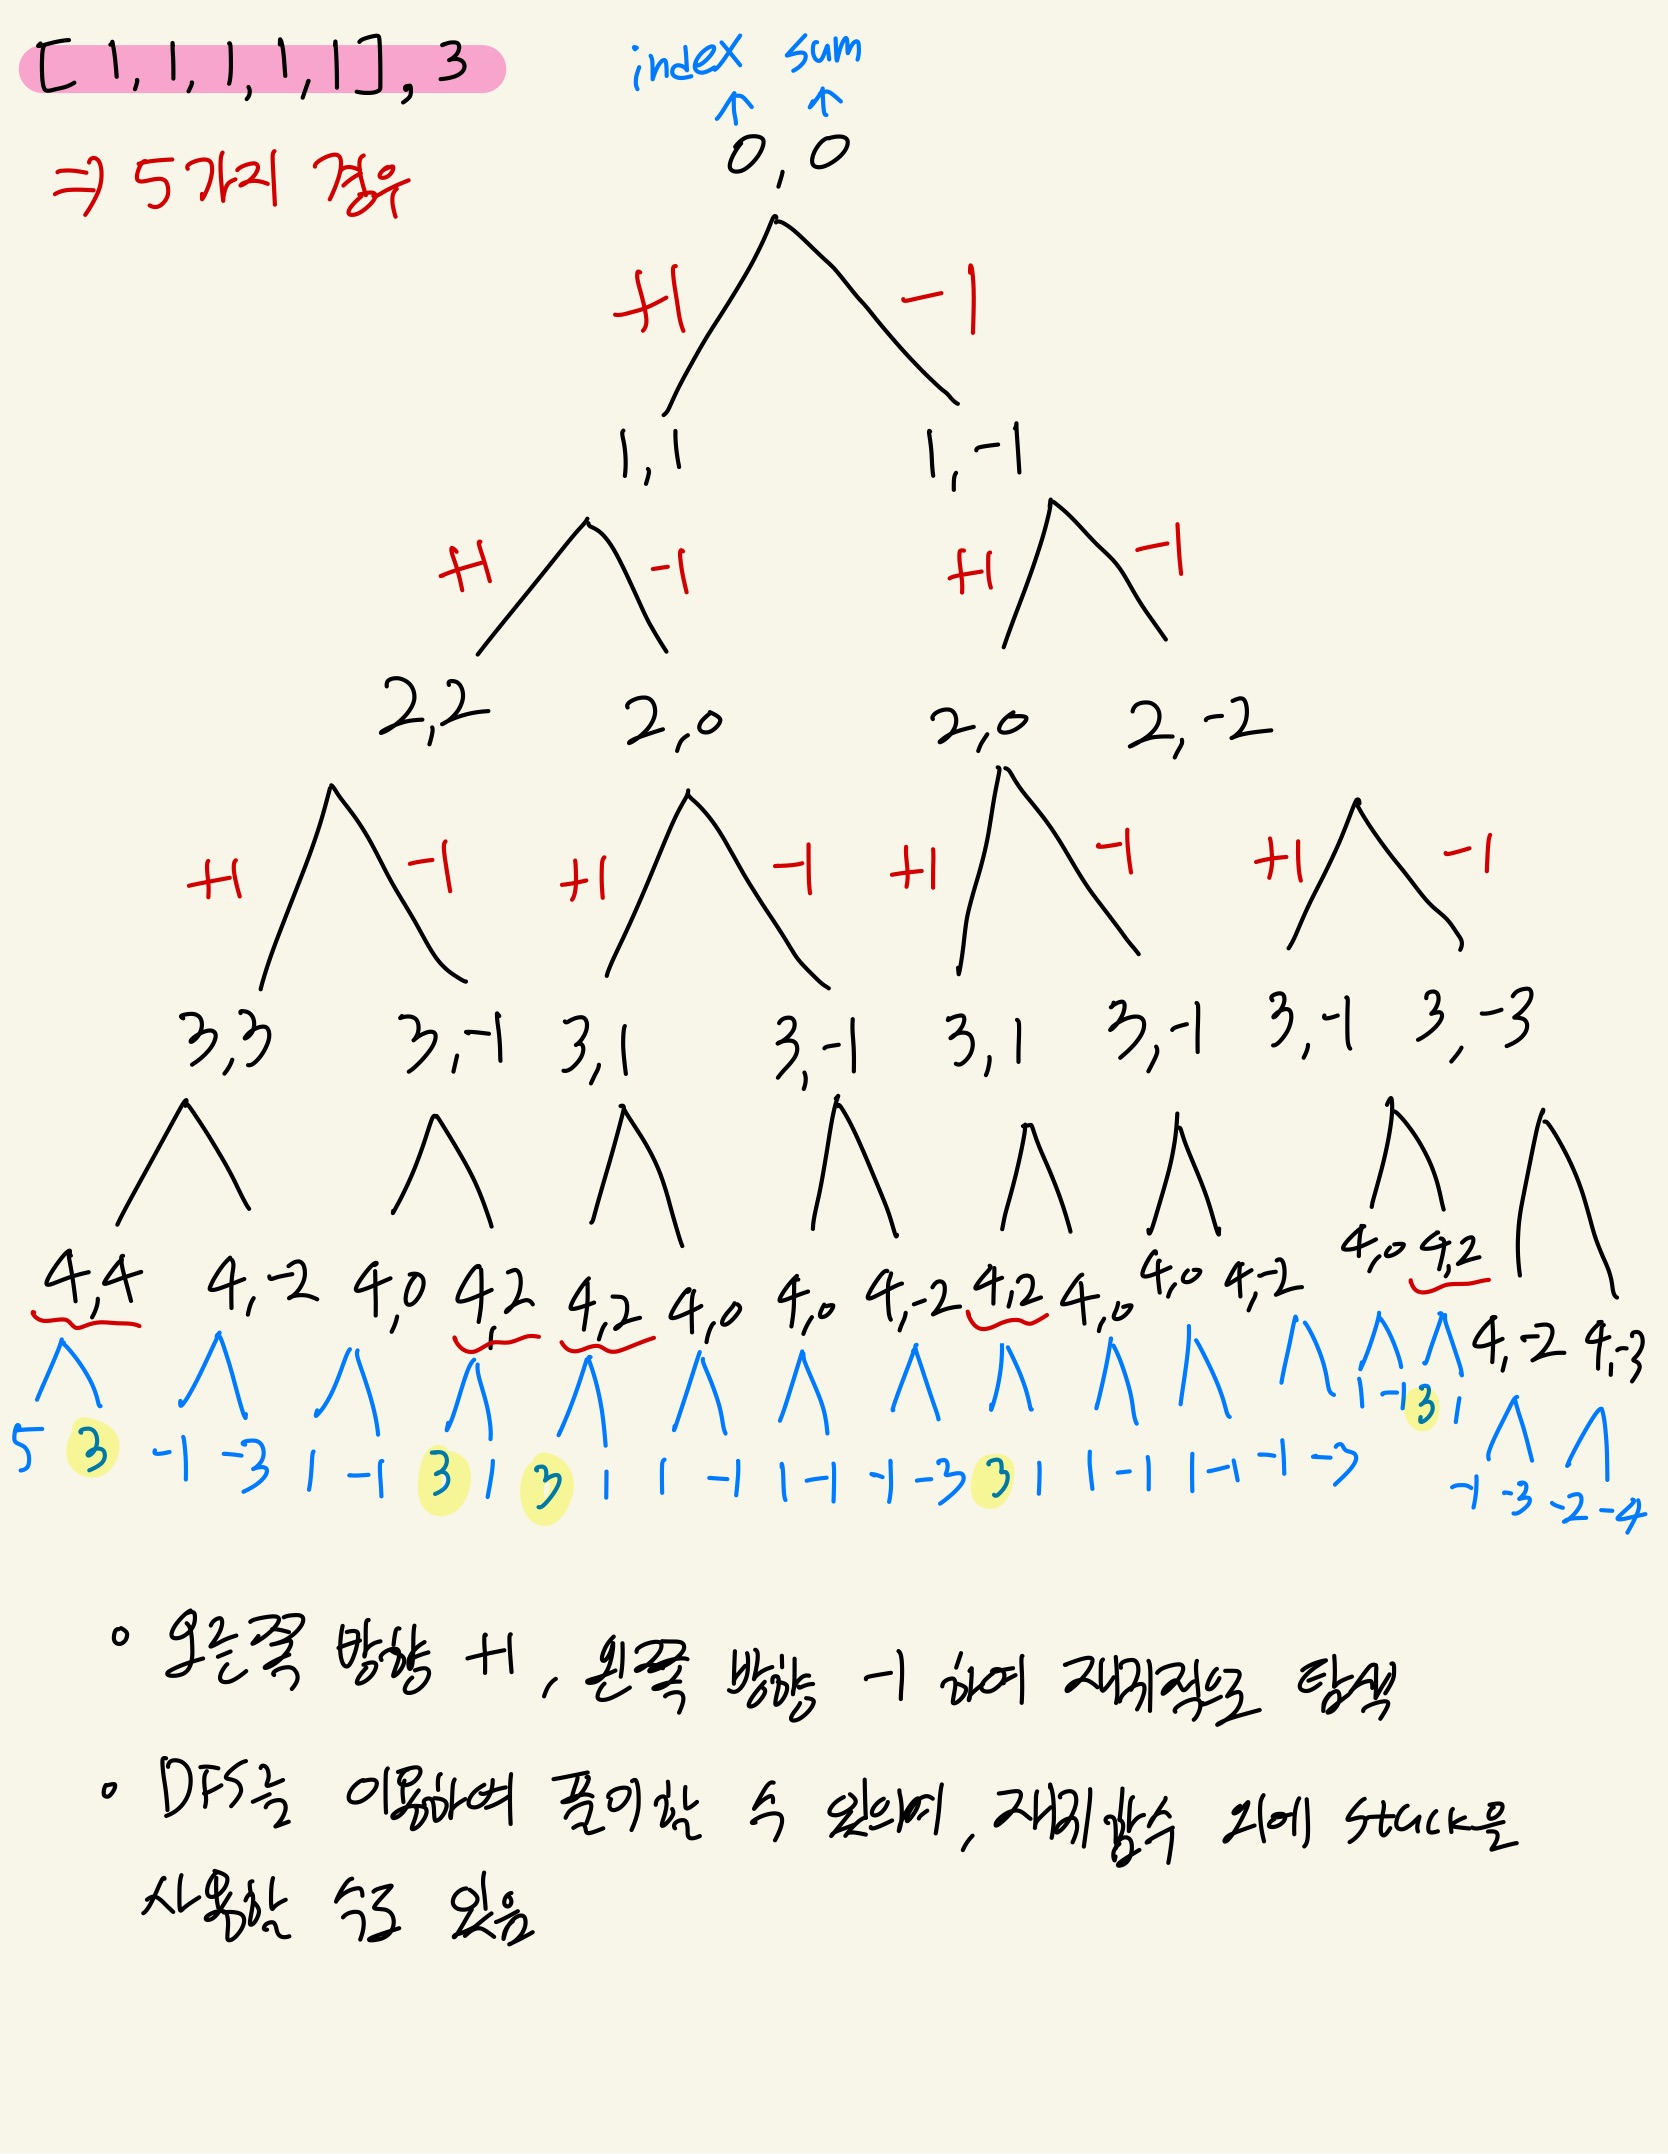 [1, 1, 1, 1, 1], 3
index sum
⇒ 5가지 경우
↑ ↑
0, 0
+1 -1
1, 1 1, -1
+1 -1 +1 -1
2, 2 2, 0 2, 0 2, -2
+1 -1 +1 -1 +1 -1 +1 -1
3, 3 3, -1 3, 1 3, -1 3, 1 3, -1 3, -1 3, -3
4, 4 4, -2 4, 0 4, 2 4, 2 4, 0 4, 0 4, -2 4, 2 4, 0 4, 0 4, -2 4, 0 4, 2 4, -2 4, -3
5 3 -1 -3 1 -1 3 1 3 1 1 -1 1 -1 -1 -3 3 1 1 -1 1 -1 -1 -3 1 -1 3 1 -1 -3 -2 -4
◦ 오른쪽 방향 +1, 왼쪽 방향 -1 하여 재귀적으로 탐색
◦ DFS를 이용하여 풀이할 수 있으며, 재귀함수 외에 stack을
사용할 수도 있음